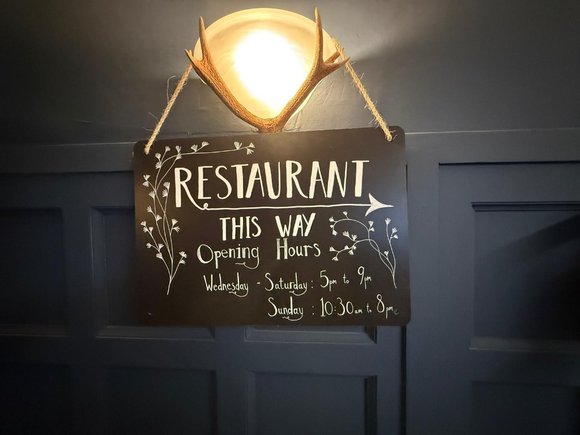 RESTAURANT
THIS WAY
Opening Hours
Wednesday - Saturday : 5pm to 9pm
Sunday : 10:30am to 8pm